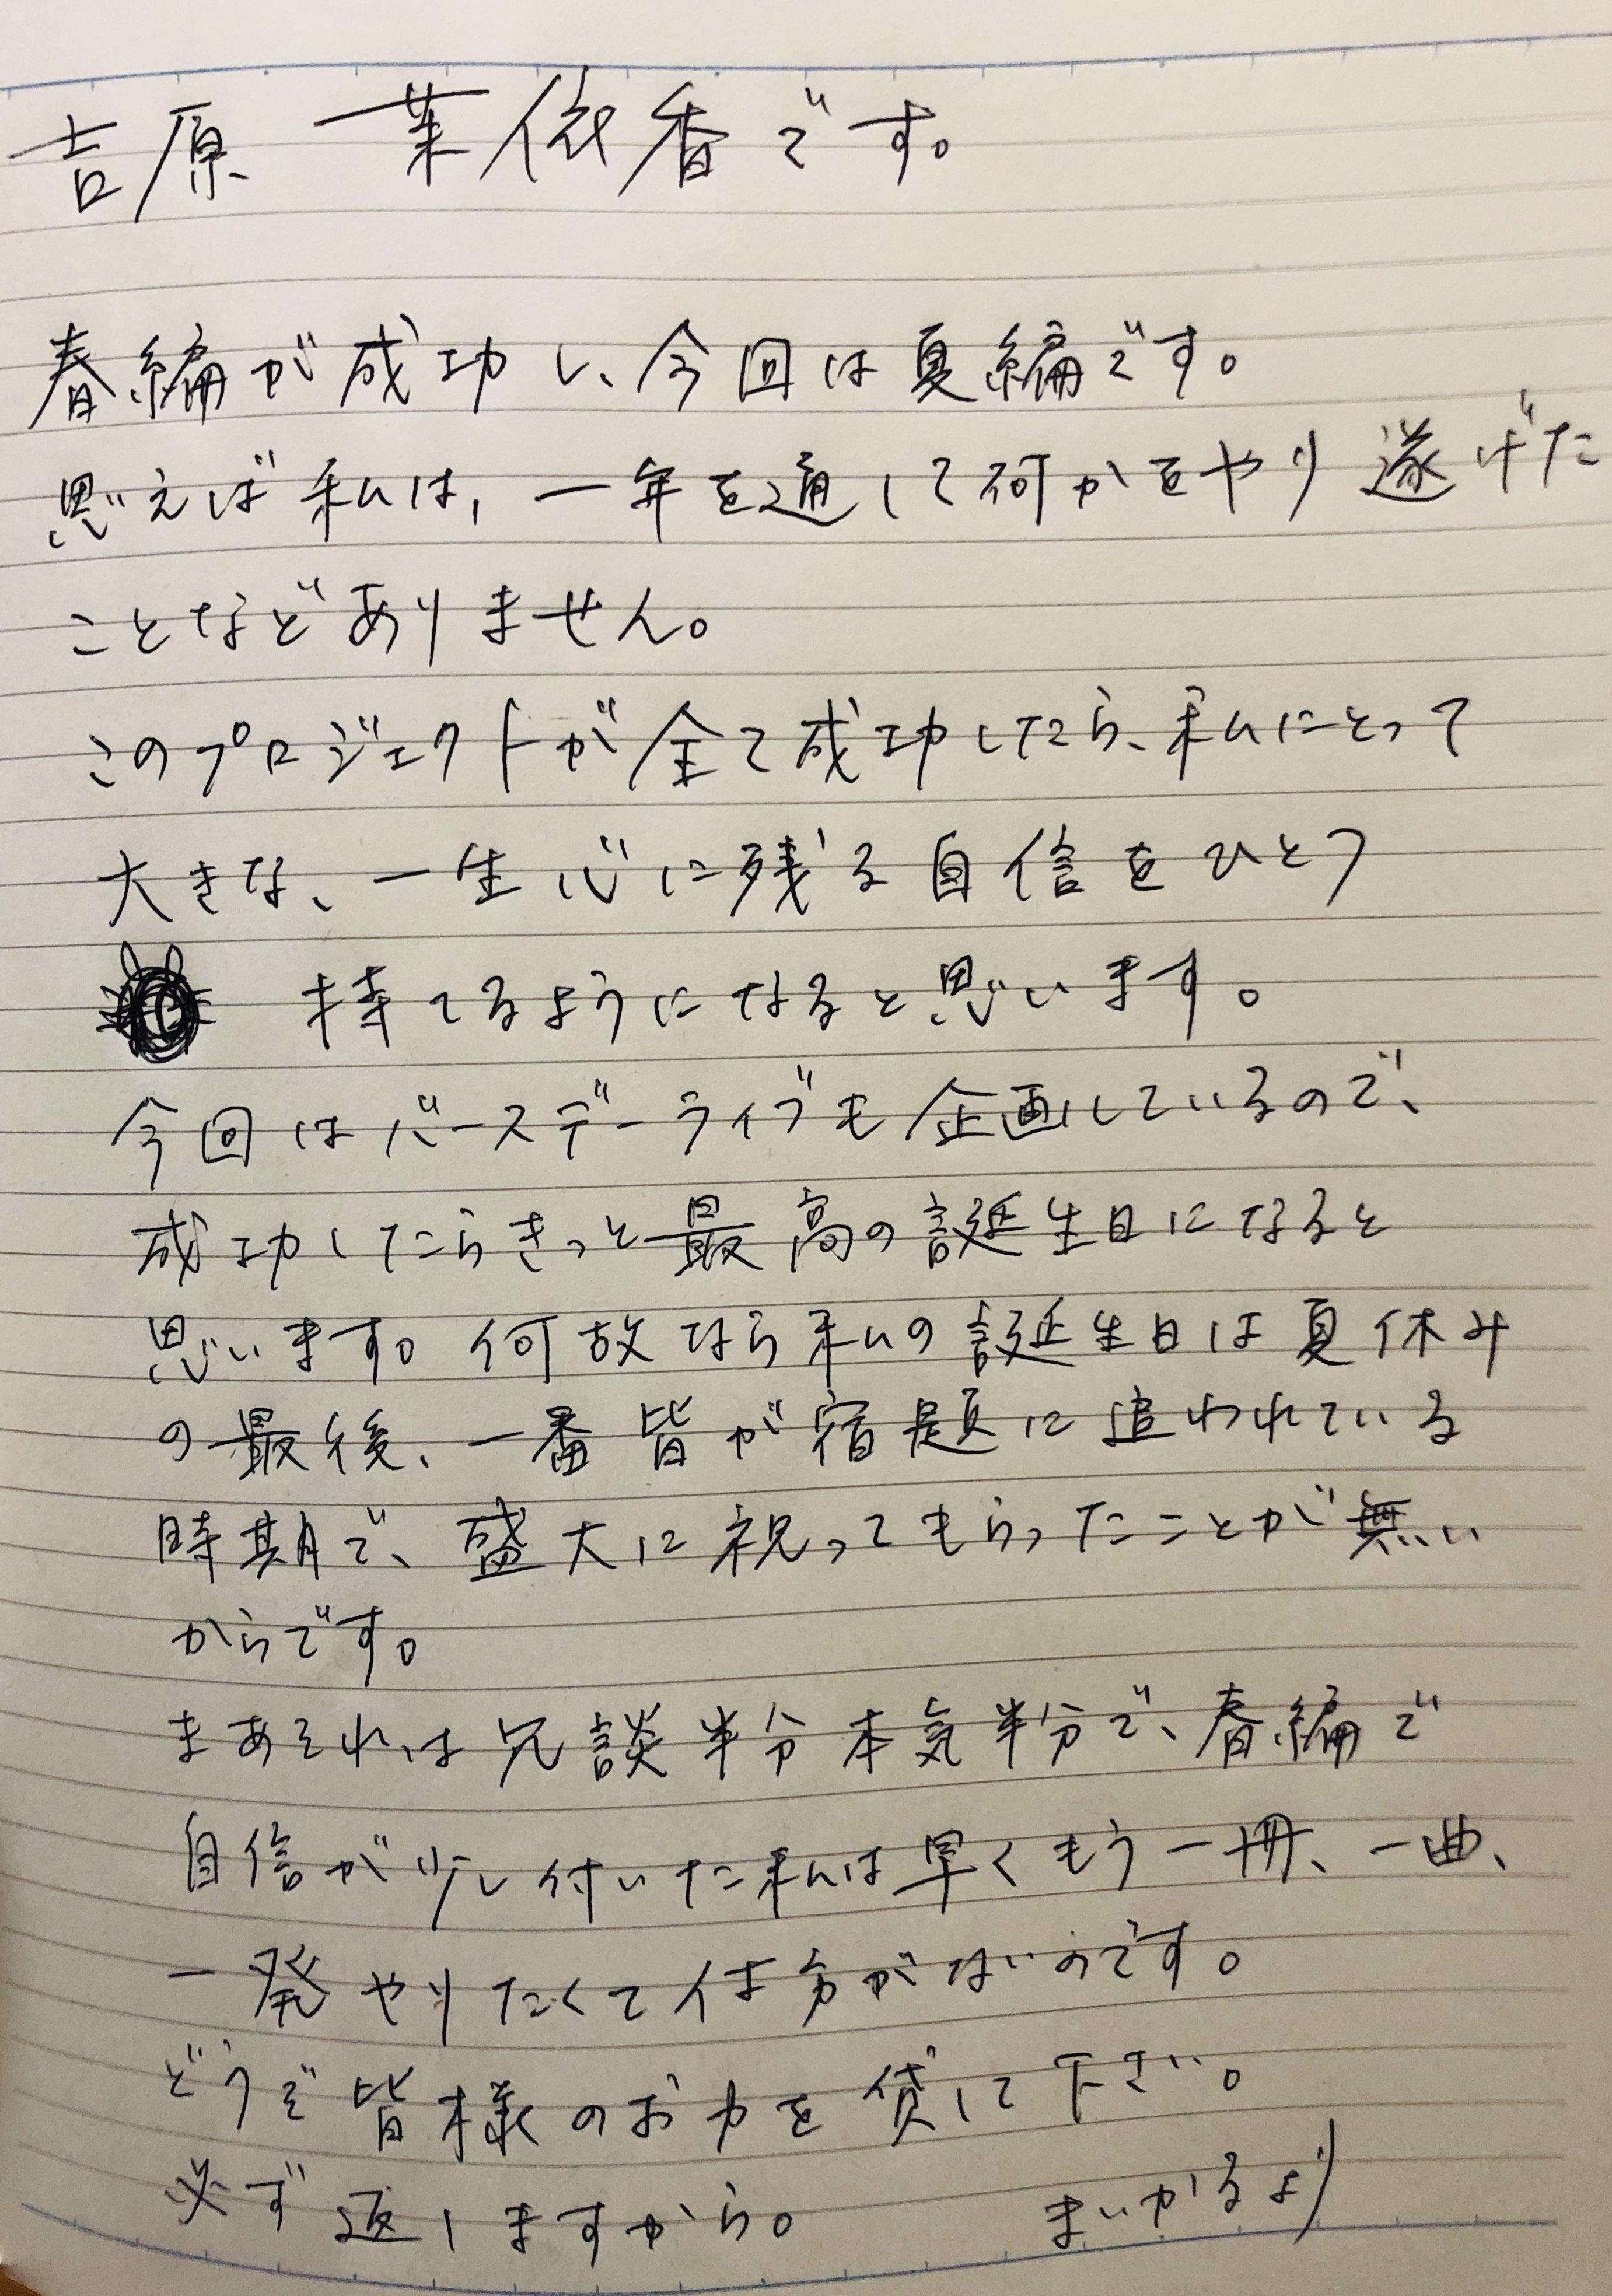 吉原 茉依香です。
春編が成功し、今回は夏編です。
思えば私は、一年を通して何かをやり遂げた
ことなどありません。
このプロジェクトが全て成功したら、私にとって
大きな、一生心に残る自信をひとつ
持てるようになると思います。
今回はバースデーライブも企画しているので、
成功したらきっと最高の誕生日になると
思います。何故なら私の誕生日は夏休み
の最後、一番皆が宿題に追われている
時期で、盛大に祝ってもらったことが無い
からです。
まあそれは冗談半分本気半分で、春編で
自信が少し付いた私は早くもう一冊、一曲、
一発やりたくて仕方がないのです。
どうぞ皆様のお力を貸して下さい。
必ず返しますから。 まいかるより